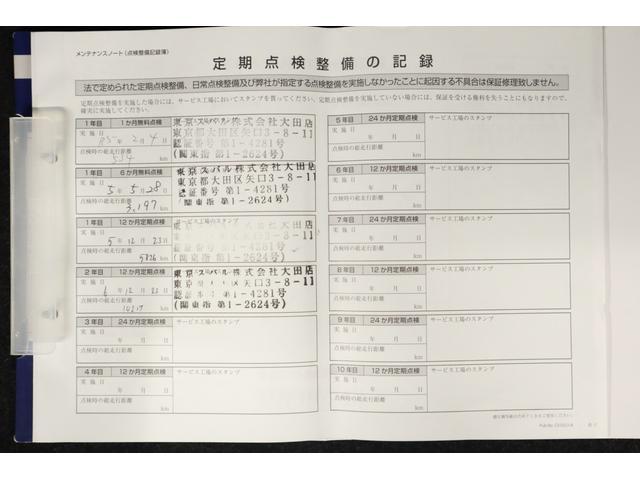 メンテナンスノート(点検整備記録簿)
定期点検整備の記録
法で定められた定期点検整備、日常点検整備及び弊社が指定する点検整備を実施しなかったことに起因する不具合は保証修理致しません。
定期点検整備を実施した場合には、サービス工場においてスタンプを貰ってください。定期点検整備を実施していない場合には、保証を受ける権利を失うこともありますので、
確実に実施してください。
1年目 1か月無料点検
実施日
R5年 2月 4日
点検時の総走行距離
534 km
東京スバル株式会社大田店
東京都大田区矢口3-8-11
認証番号 第1-4281号
(関東指 第1-2624号)
1年目 6か月無料点検
実施日
5年 5月 28日
点検時の総走行距離
3,197 km
東京スバル株式会社大田店
東京都大田区矢口3-8-11
認証番号 第1-4281号
(関東指 第1-2624号)
1年目 12か月定期点検 サービス工場のスタンプ
実施日
5年 12月 23日
点検時の総走行距離
km
東京都大田区矢口3-8-11
(関東指 第1-2624号)
2年目 12か月定期点検
実施日
6年 12月 日
点検時の総走行距離
km
東京スバル株式会社大田店
第1-4281号
(関東指 第1-2624号)
3年目 24か月定期点検 サービス工場のスタンプ
実施日
年 月 日
点検時の総走行距離
km
4年目 12か月定期点検 サービス工場のスタンプ
実施日
年 月 日
点検時の総走行距離
km
5年目 24か月定期点検 サービス工場のスタンプ
実施日
年 月 日
点検時の総走行距離
km
6年目 12か月定期点検 サービス工場のスタンプ
実施日
年 月 日
点検時の総走行距離
km
7年目 24か月定期点検 サービス工場のスタンプ
実施日
年 月 日
点検時の総走行距離
km
8年目 12か月定期点検 サービス工場のスタンプ
実施日
年 月 日
点検時の総走行距離
km
9年目 24か月定期点検 サービス工場のスタンプ
実施日
年 月 日
点検時の総走行距離
km
10年目 12か月定期点検 サービス工場のスタンプ
実施日
年 月 日
点検時の総走行距離
km